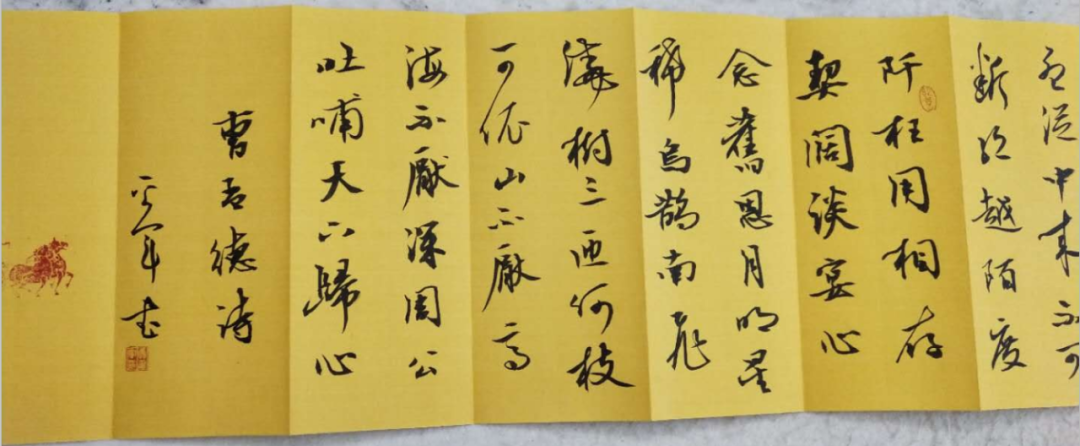 憂從中來不可
斷絕越陌度
阡枉用相存
契闊談宴心
念舊恩月明星
稀烏鵲南飛
繞樹三匝何枝
可依山不厭高
海不厭深周公
吐哺天下歸心
曹孟德詩
年書